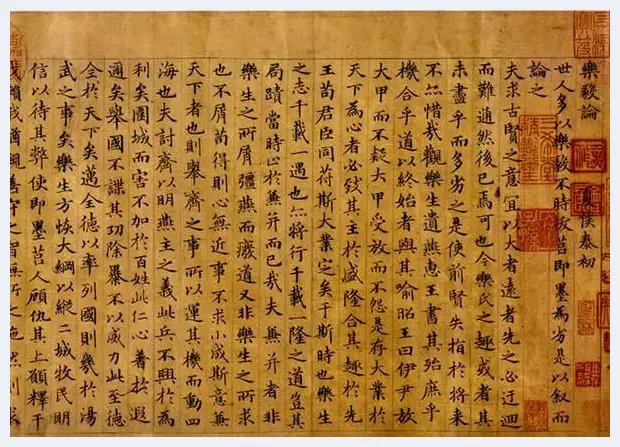 樂毅論 夏侯泰初
世人多以樂毅不時拔莒即墨為劣是以叙而
論之
夫求古賢之意宜以大者遠者先之必迂迴
而難通然後已焉可也今樂氏之趣或者其
未盡乎而多劣之是使前賢失指於將来
不亦惜哉觀樂生遺燕惠王書其殆庶乎
機合乎道以終始者與其喻昭王曰伊尹放
大甲而不疑大甲受放而不怨是存大業於
天下為心者必致其主於盛隆合其趣於先
王苟君臣同符斯大業定矣于斯時也樂生
之志千載一遇也亦將行千載一隆之道豈其
局蹟當時止於兼并而已哉夫兼并者非
樂生之所屑彊燕而廢道又非樂生之所求
也不屑苟得則心無近事不求小成斯意兼
天下者也則舉齊之事所以運其機而動四
海也夫討齊以明燕主之義此兵不興於為
利矣圍城而害不加於百姓此仁心著於遐
邇矣舉國不謀其功除暴不以威力此至德
全於天下矣邁全德以率列國則幾於湯
武之事矣樂生方恢大綱以縱二城牧民明
信以待其弊使即墨莒人顧仇其上願釋干